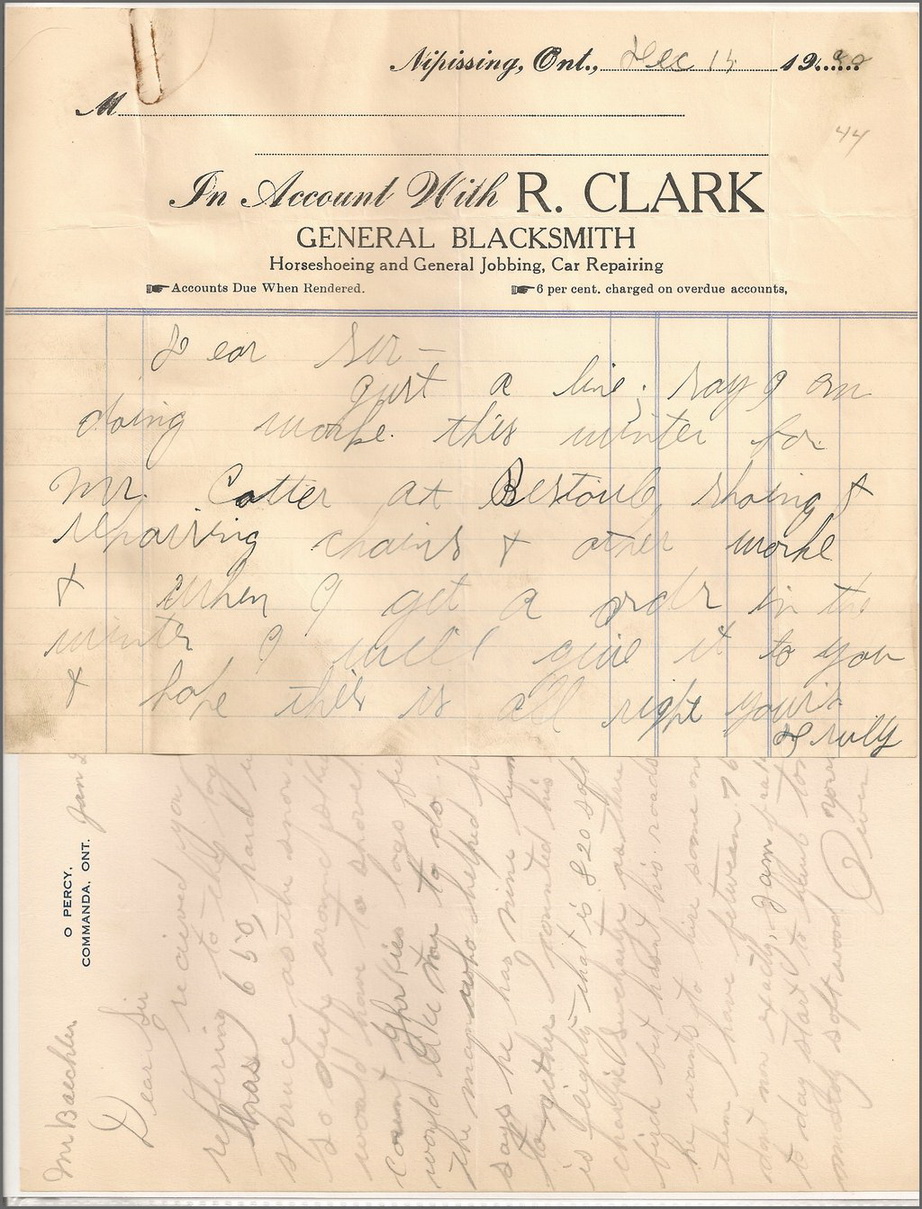 Nipissing, Ont., Dec 15 19
M
44
In Account With R. CLARK
GENERAL BLACKSMITH
Horseshoeing and General Jobbing, Car Repairing
Accounts Due When Rendered. 6 per cent. charged on overdue accounts,
Dear Sir -
Just a line; say I am
doing worke this winter for
Mr. Cotter at Restoule, shoing &
repairing chains & other worke
& When I get a order in the
winter I will give it to you
& hope this is all right yours
Truly
O PERCY,
COMMANDA, ONT.
Jan
Mr Baechler
Dear Sir
I recived you
reffering to the log
has 650, hard
spruce as the snow
so deep around the
would have to shovel
count for ties logs
would like me to do
the man who helped
says he has nine hun
to gether I counted his
is eighty that is 820 soft
charlie Suchare as there
birch but hasnt his roads
he wants to hire some
them I have between 76
dont no exactly, I am
to day start to
mostly soft wood your
Owen